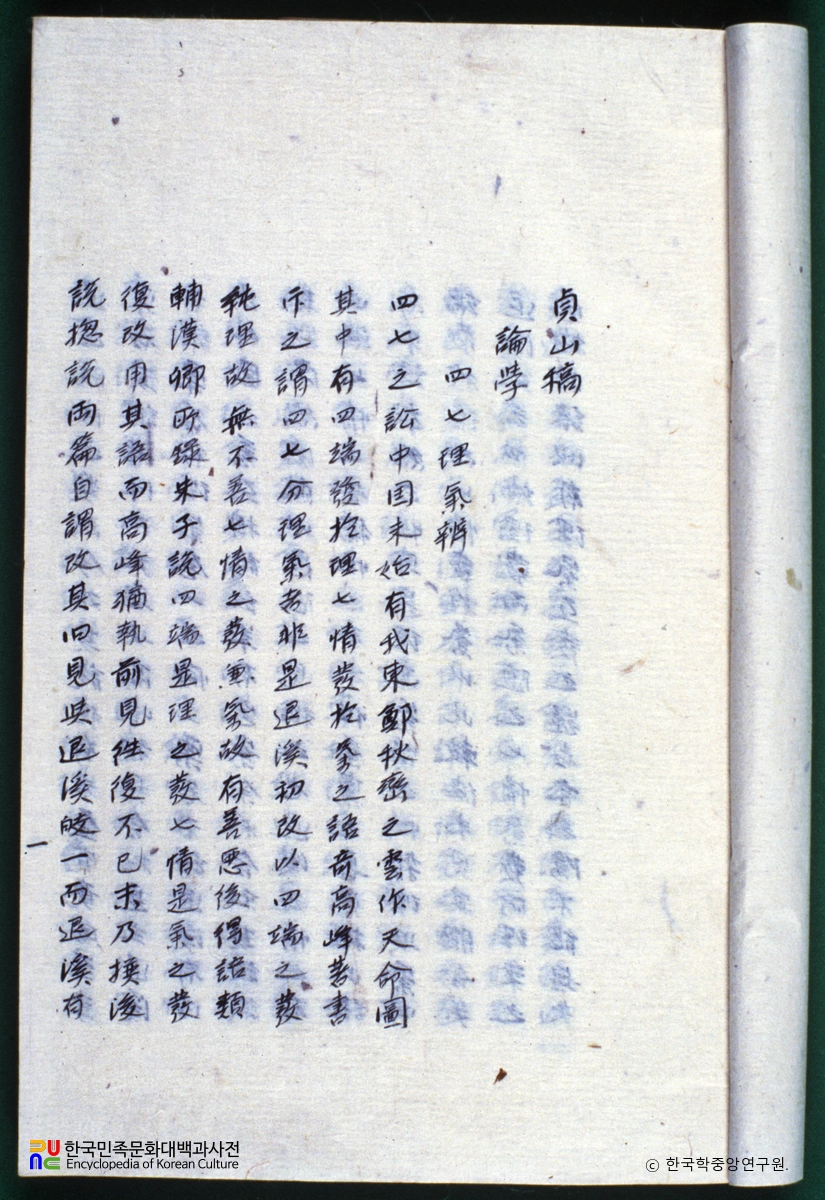 貞山稿
論学
四七理氣辨
四七之訟中国未始有我東鄭秋巒之雲作天命圖
其中有四端發扵理七情發扵氣之語奇高峰著書
卞之謂四七分理氣者非是退溪初改以四端之發
純理故無不善七情之發兼氣故有善惡後得語類
輔漢卿所錄朱子説四端是理之發七情是氣之發
復改用其語而高峰猶執前見往復不已末乃撰後
説揔説両篇自謂改其旧見與退溪皎一而退溪有
한국민족문화대백과사전
Encyclopedia of Korean Culture
© 한국학중앙연구원.